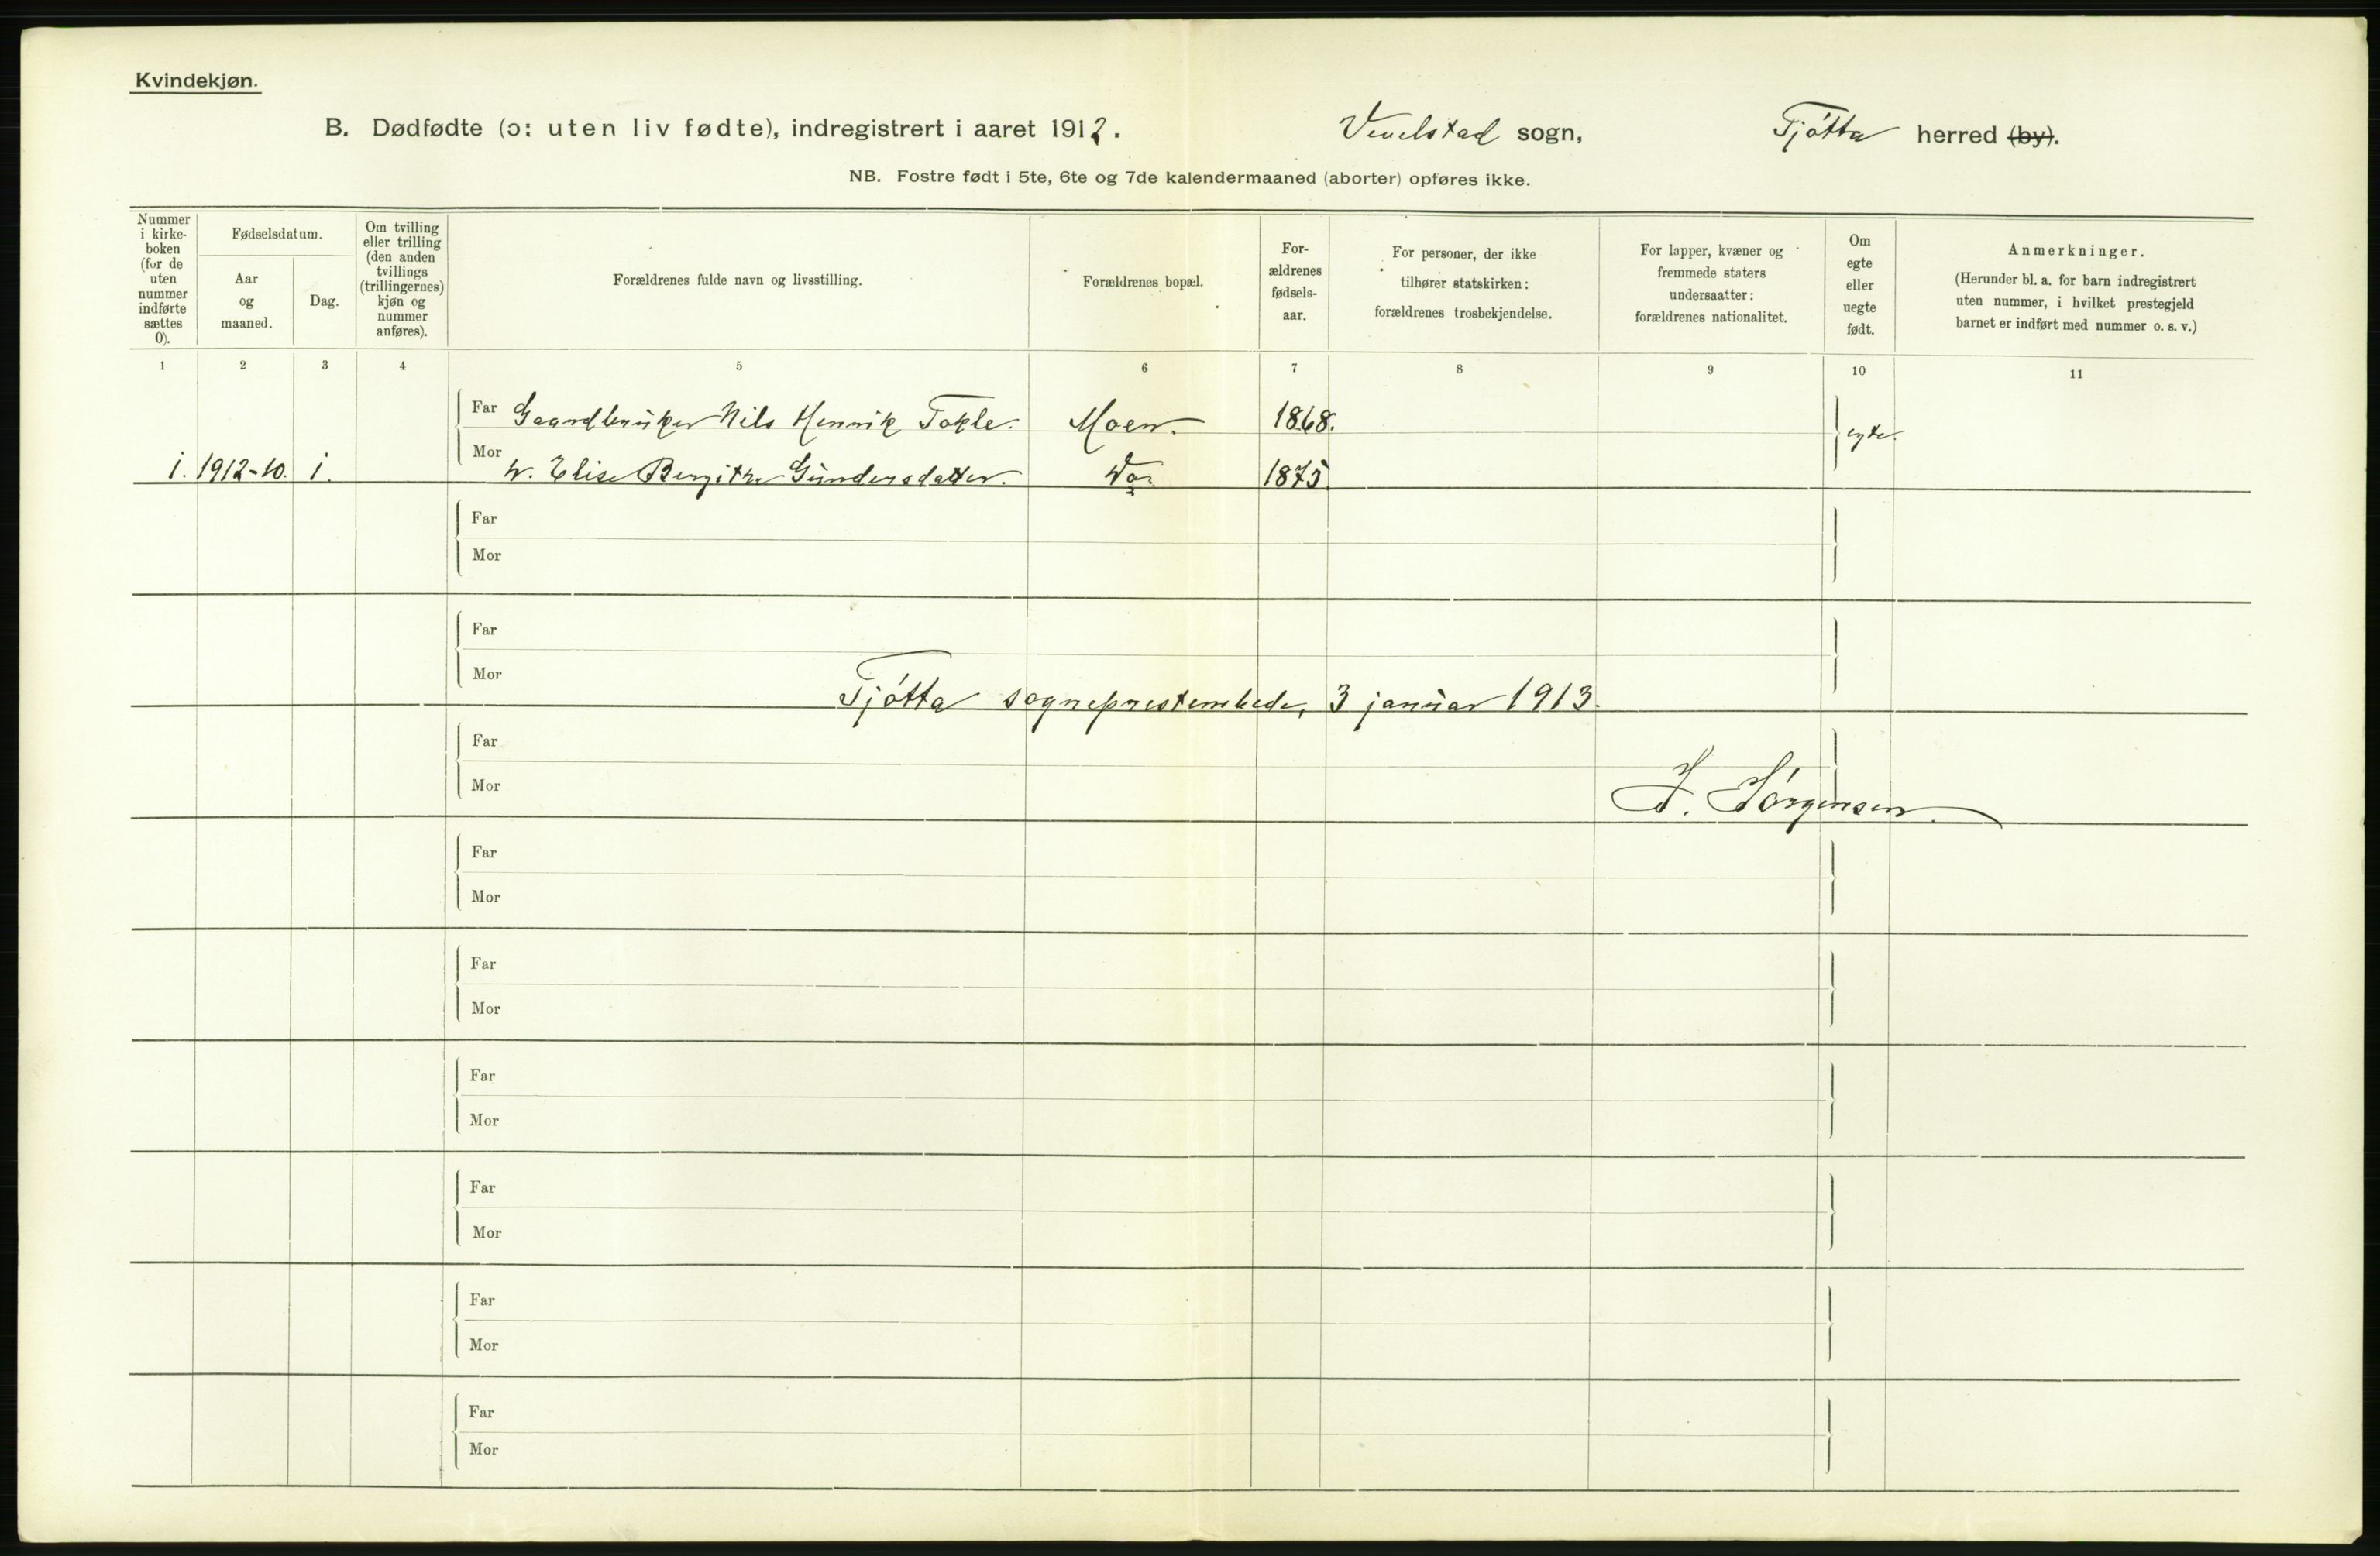 Kvindekjøn.
B. Dødfødte (ɔ: uten liv fødte), indregistrert i aaret 1912. Vevelstad sogn, Tjøtta herred (by).
NB. Fostre født i 5te, 6te og 7de kalendermaaned (aborter) opføres ikke.
Nummer i kirke-boken (for de uten nummer indførte sættes 0).
Fødselsdatum.
Aar og maaned.
Dag.
Om tvilling eller trilling (den anden tvillings (trillingernes) kjøn og nummer anføres).
Forældrenes fulde navn og livsstilling.
Forældrenes bopæl.
For-ældrenes fødsels-aar.
For personer, der ikke tilhører statskirken: forældrenes trosbekjendelse.
For lapper, kvæner og fremmede staters undersaatter: forældrenes nationalitet.
Om egte eller uegte født.
Anmerkninger.
(Herunder bl. a. for barn indregistrert uten nummer, i hvilket prestegjeld barnet er indført med nummer o. s. v.)
1 2 3 4 5 6 7 8 9 10 11
Far Gaardbruker Nils Henrik Tokle. Moen. 1868. egte.
1. 1912-10. 1. Mor h. Elise Bergithe Gundersdatter. Do. 1875
Far
Mor
Far
Mor
Tjøtta sogneprestembede, 3 januar 1913.
Far
Mor
J. Jørgensen.
Far
Mor
Far
Mor
Far
Mor
Far
Mor
Far
Mor
Far
Mor